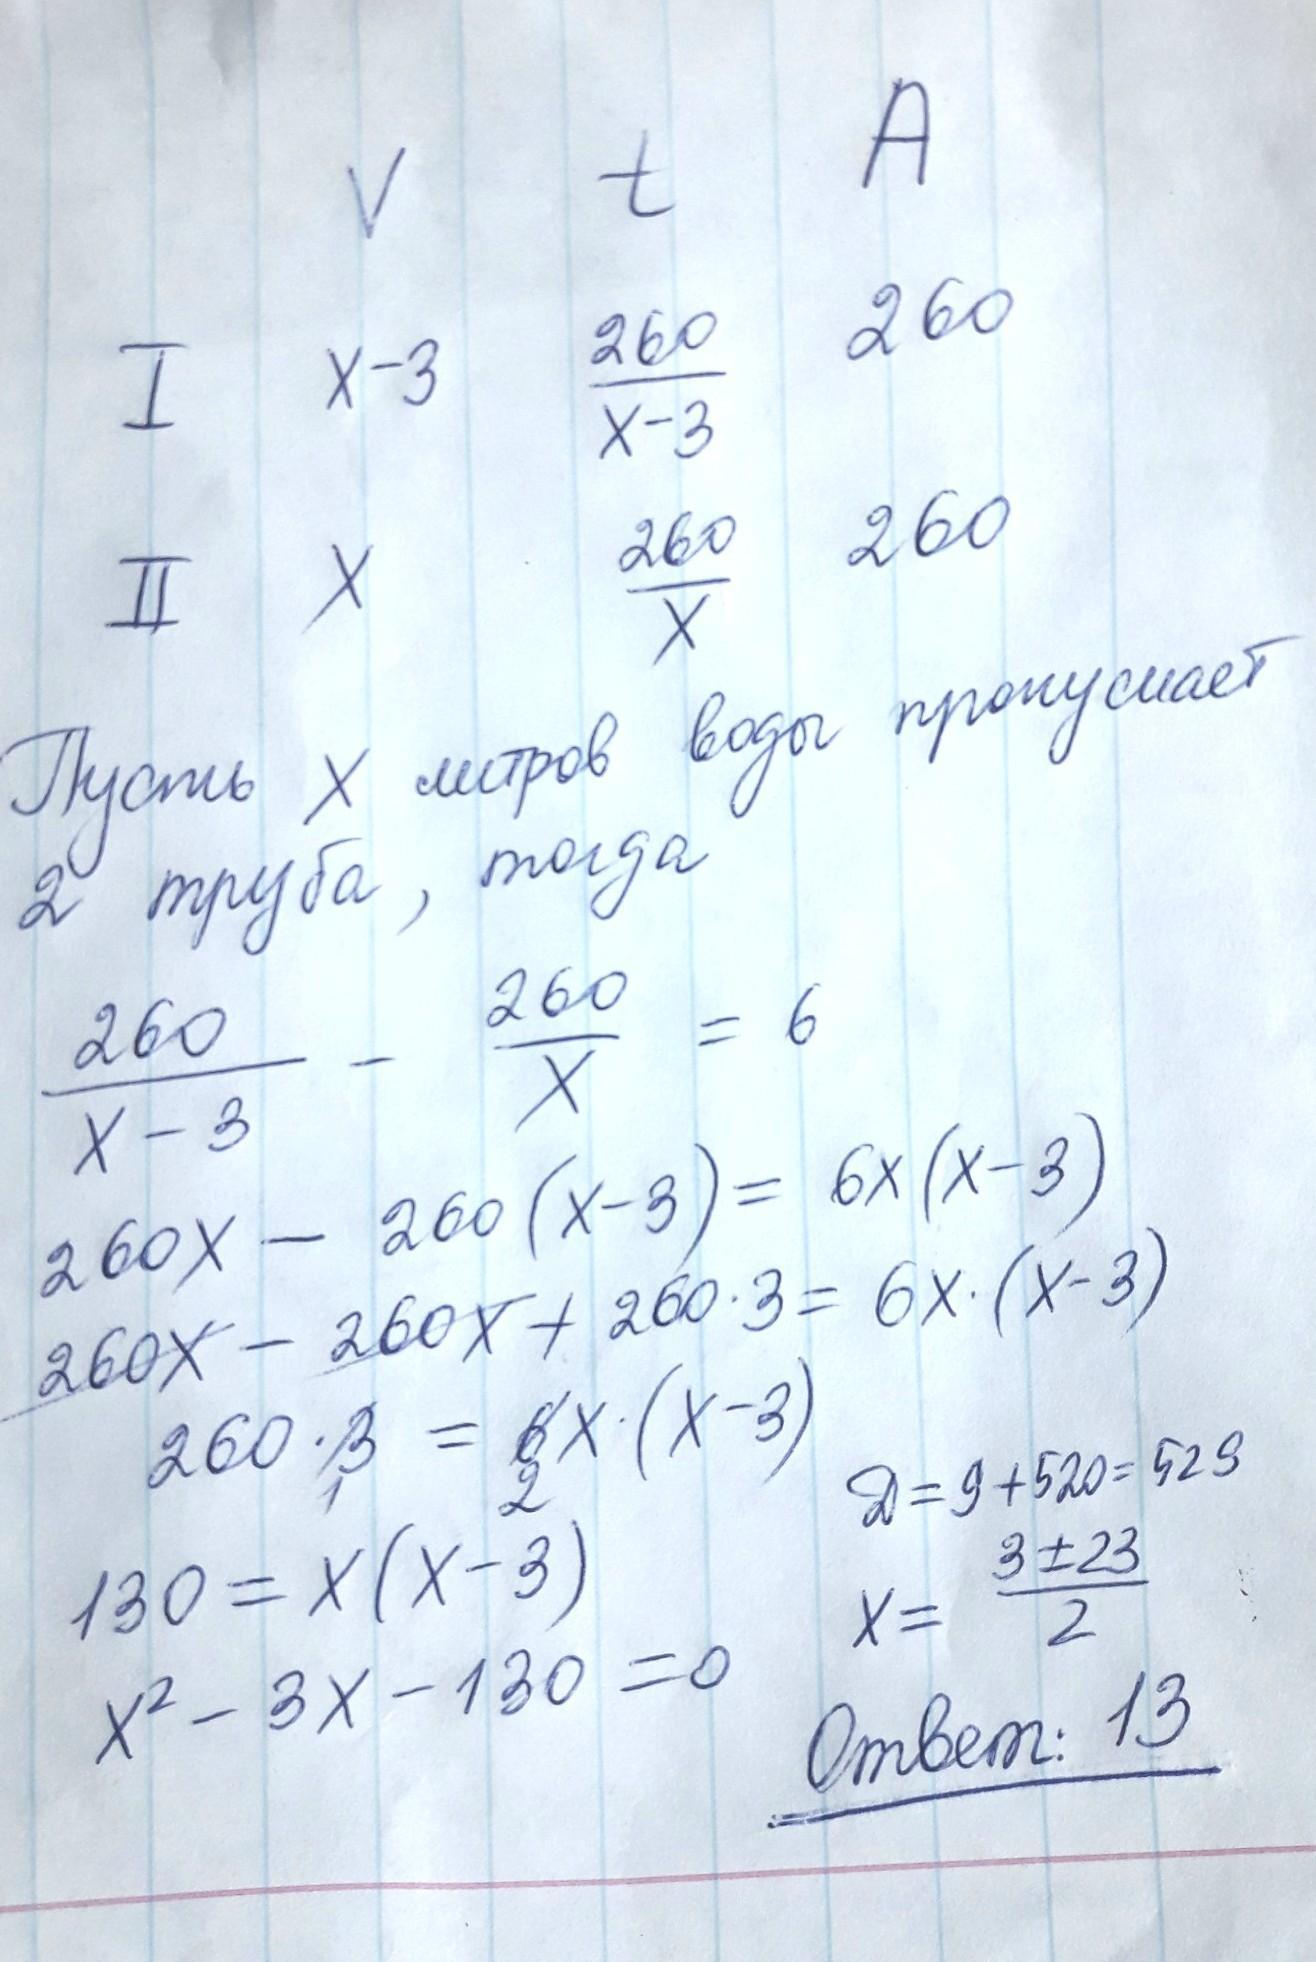 V t A
I x-3 260/(x-3) 260
II x 260/x 260
Пусть x литров воды пропускает
2 труба, тогда
260/(x-3) - 260/x = 6
260x - 260(x-3) = 6x(x-3)
260x - 260x + 260·3 = 6x·(x-3)
260·3 = 6x·(x-3)
1 2
130 = x(x-3)
x² - 3x - 130 = 0
D = 9 + 520 = 529
x = (3±23)/2
Ответ: 13